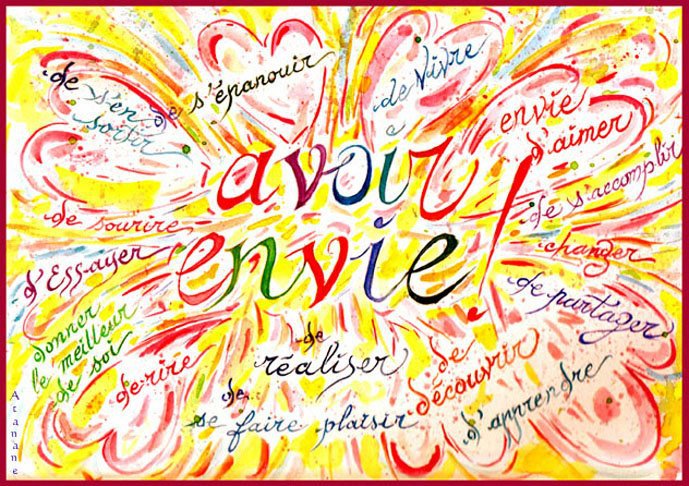 de s'en
sortir
de s'épanouir
de vivre
envie
d'aimer
avoir
envie!
de s'accomplir
de sourire
changer
d'Essayer
de partager
donner
le meilleur
de soi
de rire
de
réaliser
de
découvrir
de
se faire plaisir
d'apprendre
Atanane